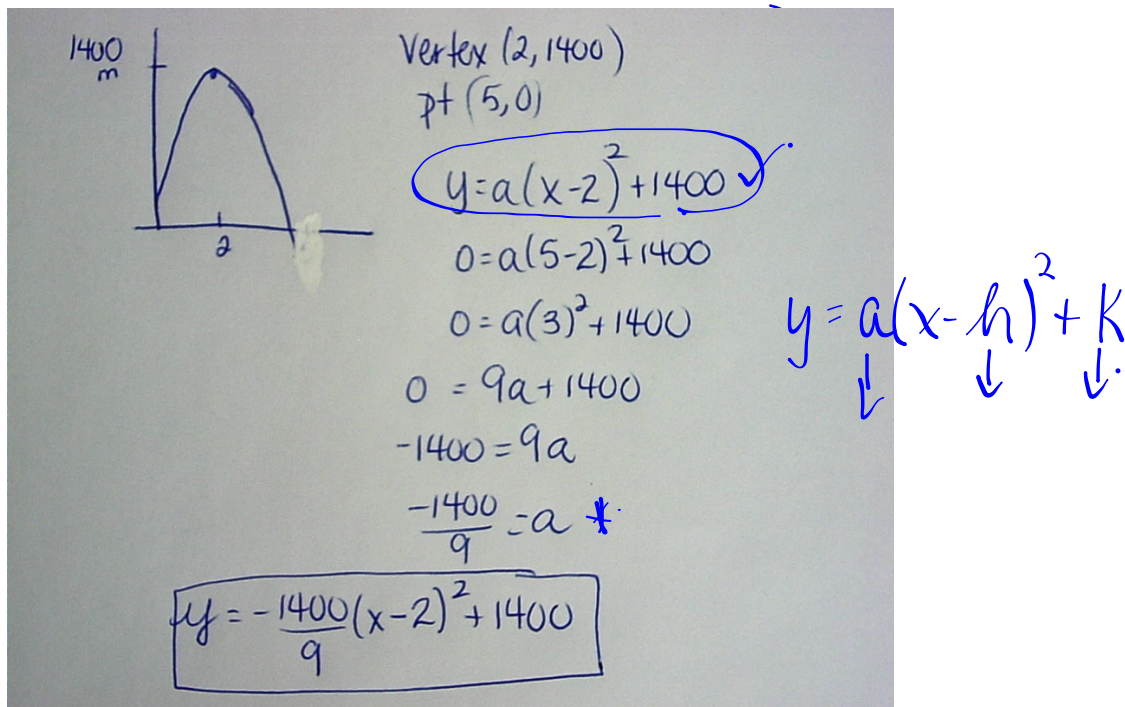 1400
m
2
Vertex (2,1400)
pt (5,0)
y=a(x-2)²+1400 ✓
0=a(5-2)²+1400
0=a(3)²+1400
0 = 9a+1400
-1400=9a
-1400/9 =a *
y=-1400/9(x-2)²+1400
y=a(x-h)²+k